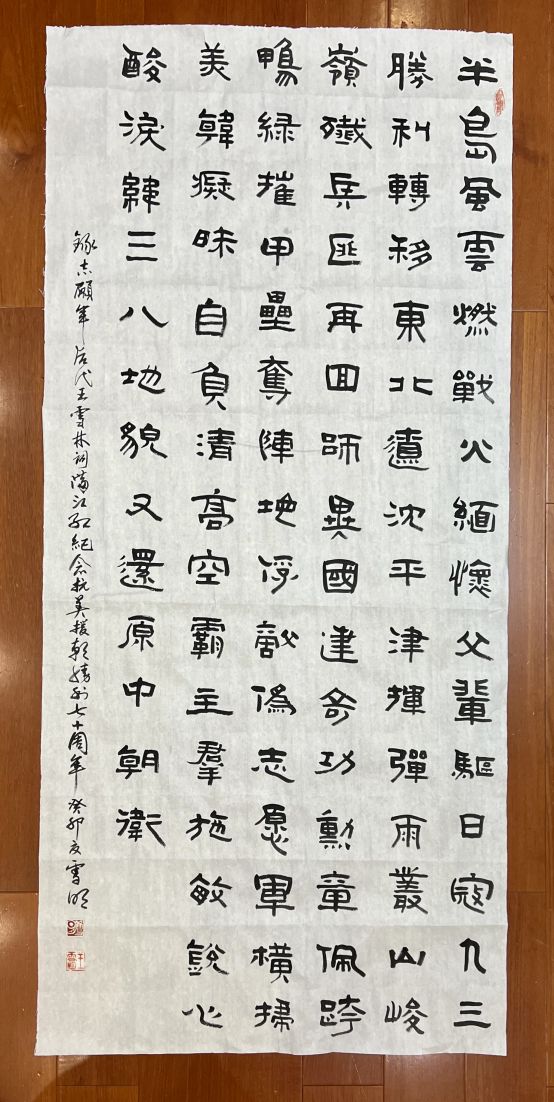 半島風雲燃戰火緬懷父輩驅日寇九三
勝利轉移東北遼沈平津揮彈雨叢山峻
嶺殲兵匪再回師異國建奇功勳章佩跨
鴨緑摧甲壘奪陣地俘敵偽志愿軍橫掃
美韓癡昧自負清高空霸主羣施敏銳心
酸淚緯三八地貌又還原中朝衛
錄志願軍后代王雪林詞滿江紅紀念抗美援朝勝利七十周年 癸卯夏雪明